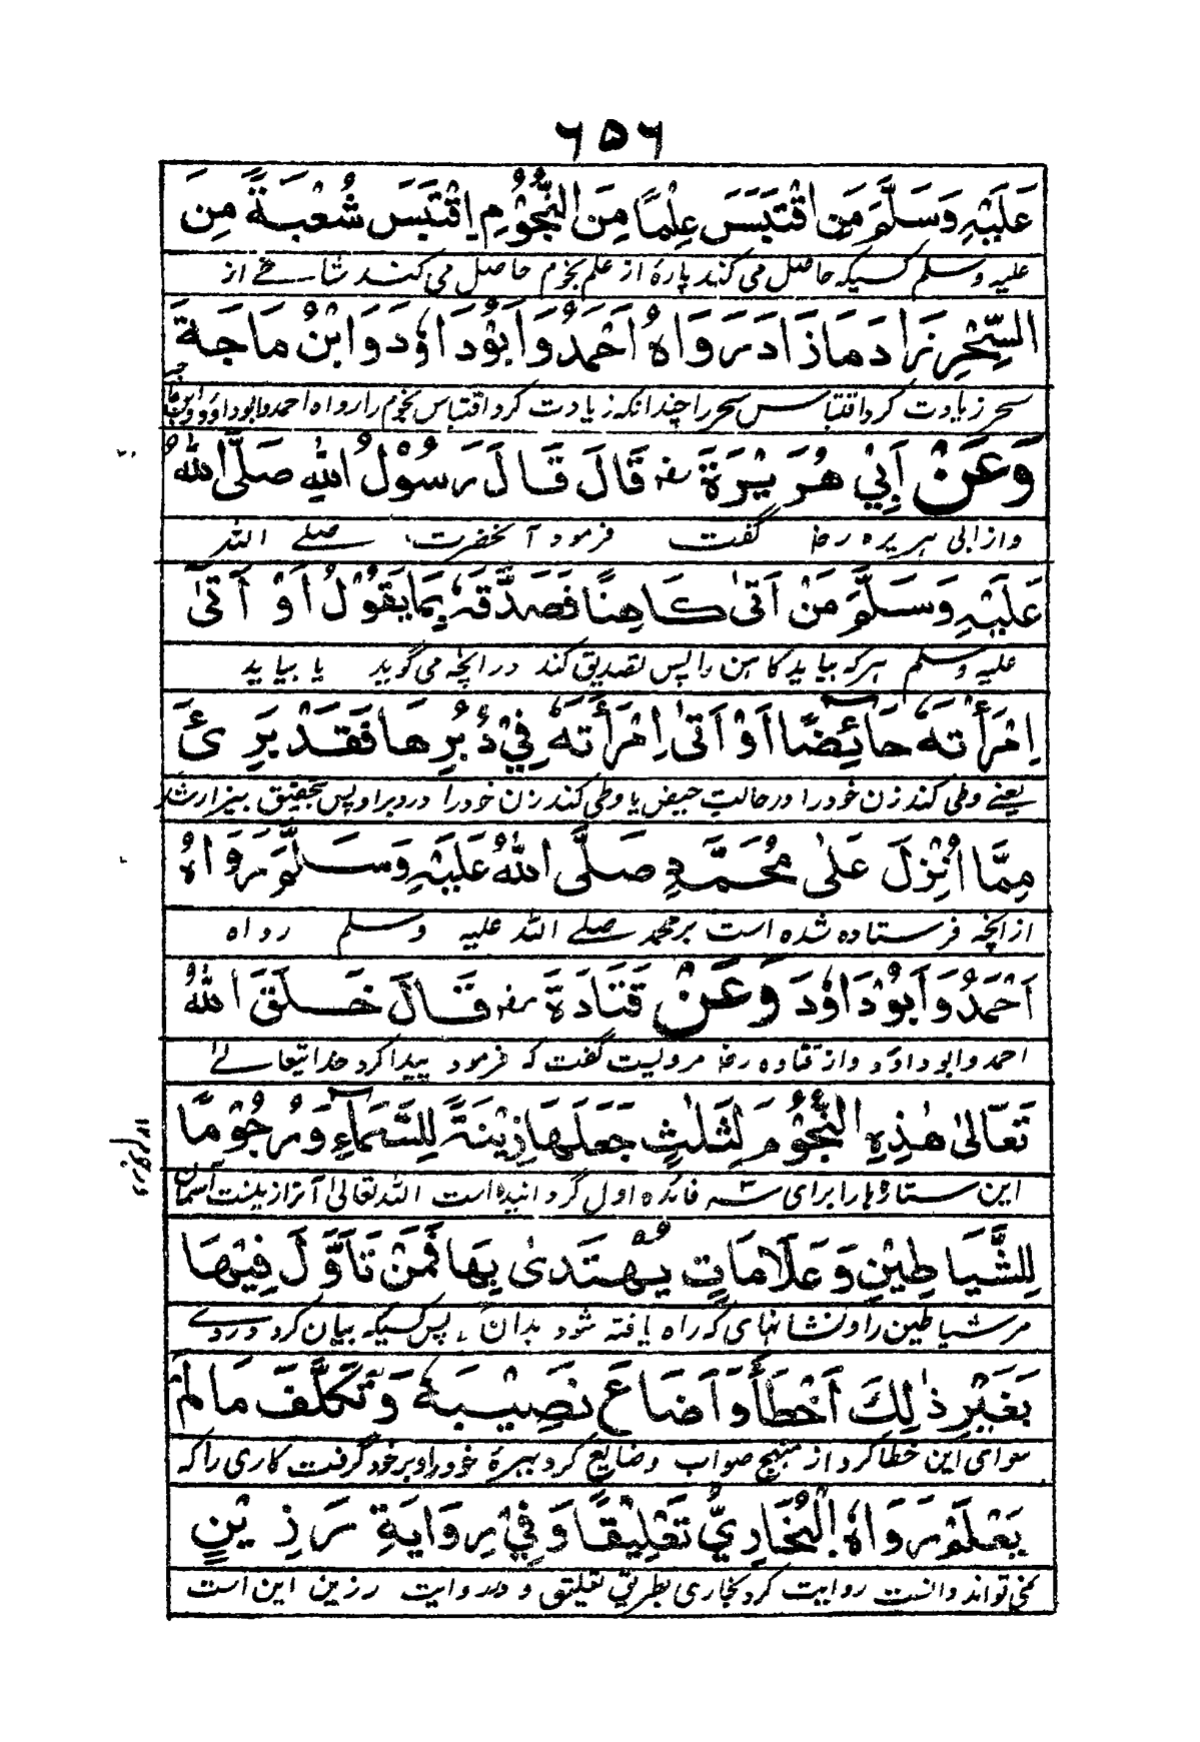 ٦٥٦
عَلَيْهِ وَسَلَّمَ مَنِ اقْتَبَسَ عِلْمًا مِنَ النُّجُوْمِ اِقْتَبَسَ شُعْبَةً مِنَ
علیہ وسلم کسیکہ حاصل می کند پارۂ از علم نجوم حاصل می کند شاخے از
السِّحْرِ زَادَ مَا زَادَ رَوَاهُ اَحْمَدُ وَاَبُوْدَاوٗدَ وَابْنُ مَاجَةَ
سحر زیادت کرد اقتباس سحر را چندانکہ زیادت کرد اقتباس نجوم را رواہ احمد وابوداؤد وابن ماجہ
وَعَنْ اَبِيْ هُرَيْرَةَ رض قَالَ قَالَ رَسُوْلُ اللهِ صَلَّى اللهُ
واز ابی ہریرہ رض گفت فرمود آنحضرت صلے اللہ
عَلَيْهِ وَسَلَّمَ مَنْ اَتٰى كَاهِنًا فَصَدَّقَهٗ بِمَا يَقُوْلُ اَوْ اَتٰى
علیہ وسلم ہرکہ بیاید کاہن را پس تصدیق کند در آنچہ می گوید یا بیاید
اِمْرَأَتَهٗ حَائِضًا اَوْ اَتٰى اِمْرَأَتَهٗ فِيْ دُبُرِهَا فَقَدْ بَرِئَ
یعنے وطی کند زن خود را در حالت حیض یا وطی کند زن خود را در دبر او پس تحقیق بیزار شد
مِمَّا اُنْزِلَ عَلٰى مُحَمَّدٍ صَلَّى اللهُ عَلَيْهِ وَسَلَّمَ رَوَاهُ
از آنچہ فرستادہ شدہ است بر محمد صلے اللہ علیہ وسلم رواہ
اَحْمَدُ وَاَبُوْدَاوٗدَ وَعَنْ قَتَادَةَ رض قَالَ خَلَقَ اللهُ
احمد وابوداؤد واز قتادہ رض مرویست گفت کہ فرمود پیدا کرد خدایتعالے
تَعَالٰى هٰذِهِ النُّجُوْمَ لِثَلٰثٍ جَعَلَهَا زِيْنَةً لِلسَّمَآءِ وَرُجُوْمًا
این ستارہا را برای سہ فائدہ اول گردانیدہ است اللہ تعالیٰ آنرا زینت آسمان
لِلشَّيَاطِيْنِ وَعَلَامَاتٍ يُهْتَدٰى بِهَا فَمَنْ تَأَوَّلَ فِيْهَا
مر شیاطین را و نشانہای کہ راہ یافتہ شود بدان پس کسیکہ بیان کرد دروے
بِغَيْرِ ذٰلِكَ اَخْطَأَ وَاَضَاعَ نَصِيْبَهٗ وَتَكَلَّفَ مَا لَمْ
سوای این خطا کرد از منہج صواب وضایع کرد بہرۂ خود را و بر خود گرفت کاری را کہ
يَعْلَمْ رَوَاهُ الْبُخَارِيُّ تَعْلِيْقًا وَفِيْ رِوَايَةِ رَزِيْنٍ
نمی تواند دانست روایت کرد بخاری بطریق تعلیق و در روایت رزین این است